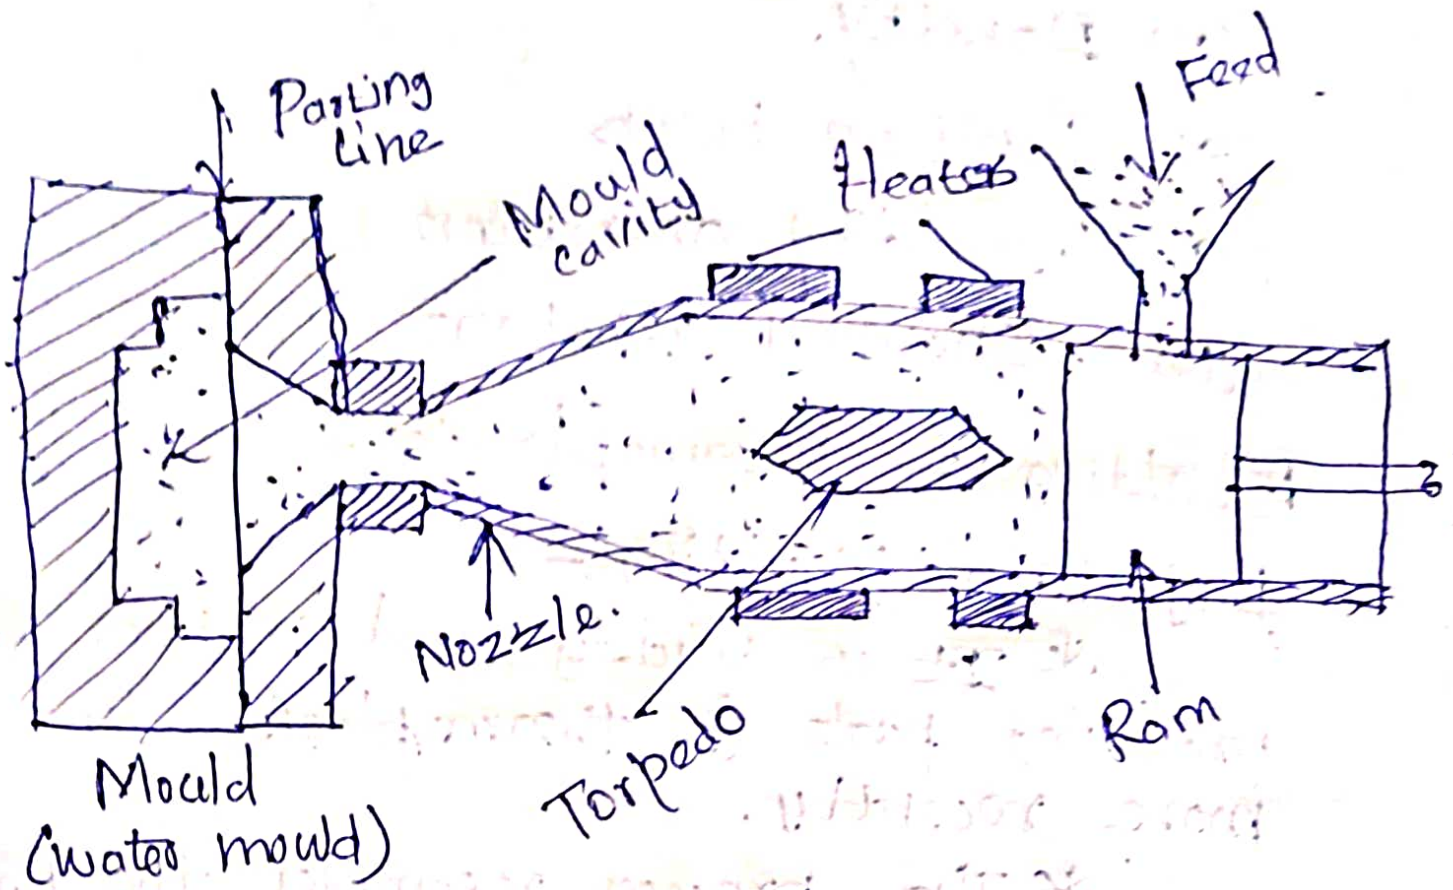 Parting
Line
Mould
cavity
Heaters
Feed
Nozzle.
Torpedo
Ram
Mould
(water mould)